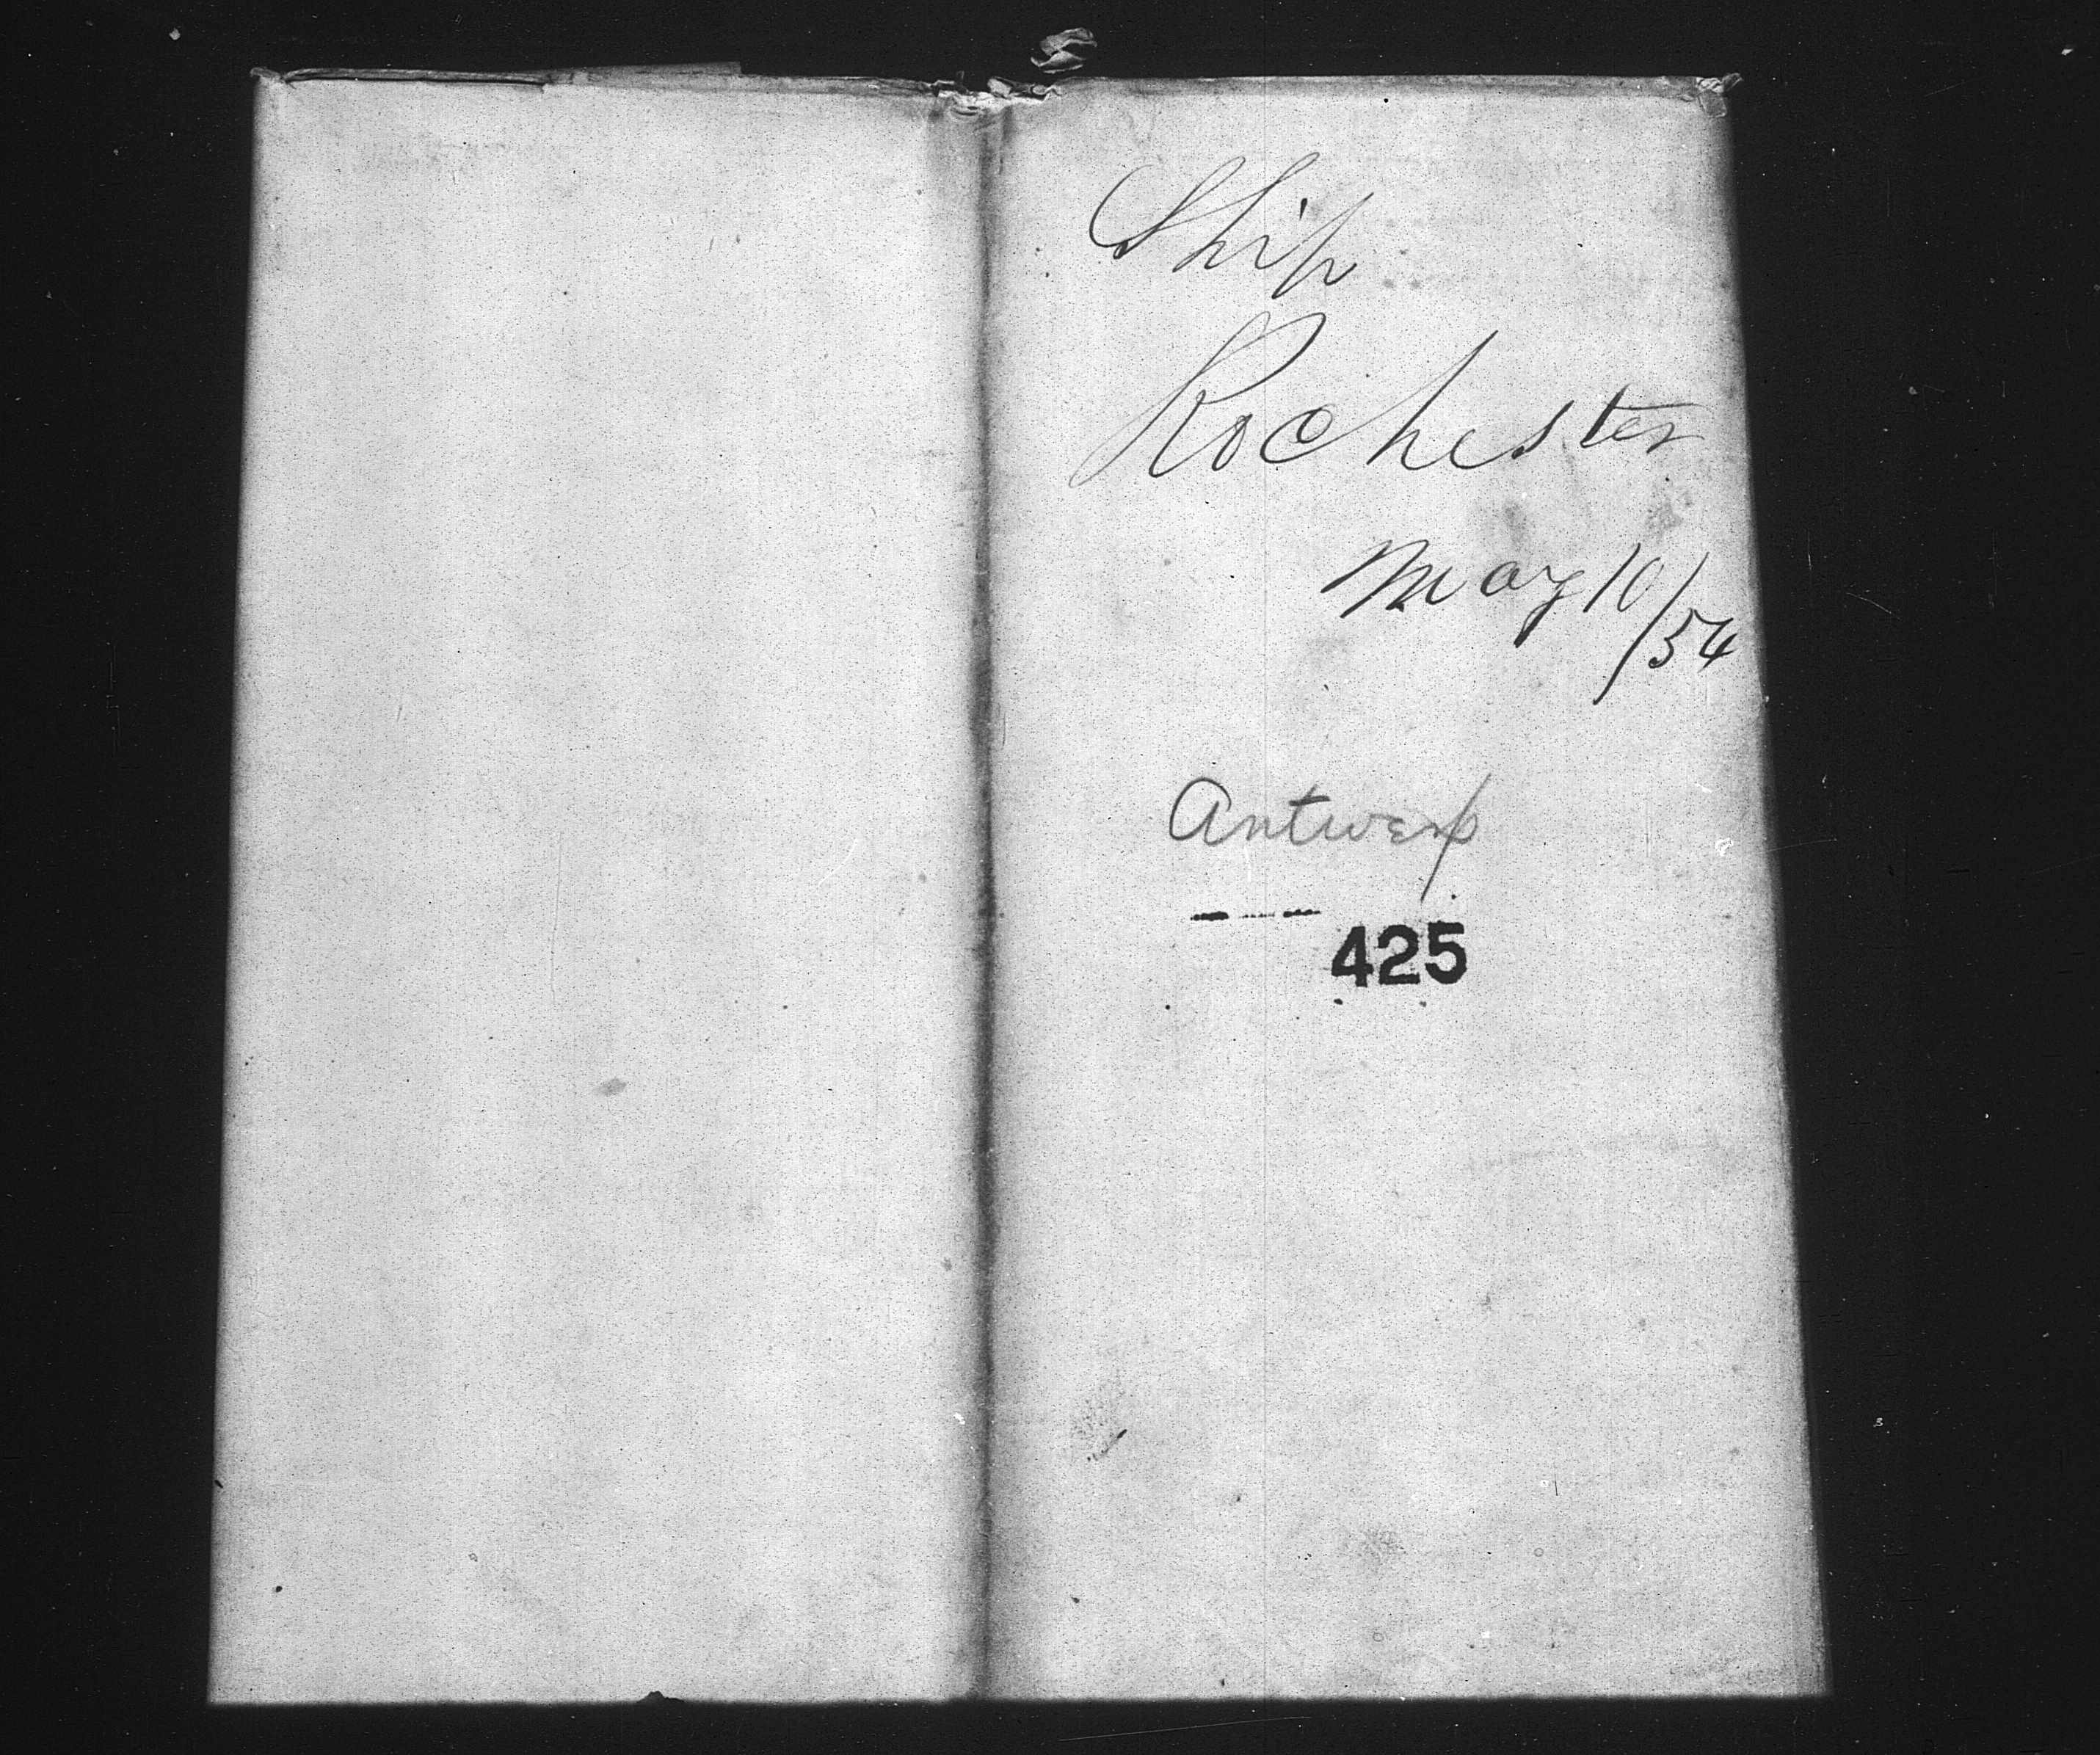 Ship
Rochester
May 10/54
Antwerp
425